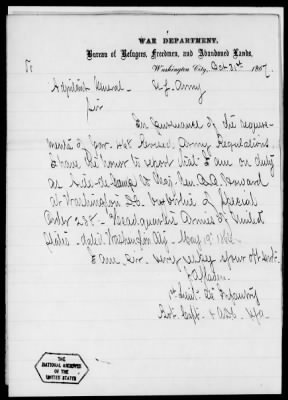 WAR DEPARTMENT,
Bureau of Refugees, Freedmen, and Abandoned Lands,
Washington City, Oct 31st 1867.
To
Adjutant General U.S. Army
Sir
In pursuance of the require-
ments of par. Revised Army Regulations
I have the honor to report that I am on duty
as Aide-de-Camp to Maj. Gen. O.O. Howard
at Washington D.C. by virtue of Special
Order 238 - Headquarters Armies of United
States - dated Washington City May 19th
I am Sir Very resp'y your ob't Serv't
1st Lieut. Infantry
Bvt. Capt. + A.D.C.
THE
NATIONAL ARCHIVES
OF THE
UNITED STATES